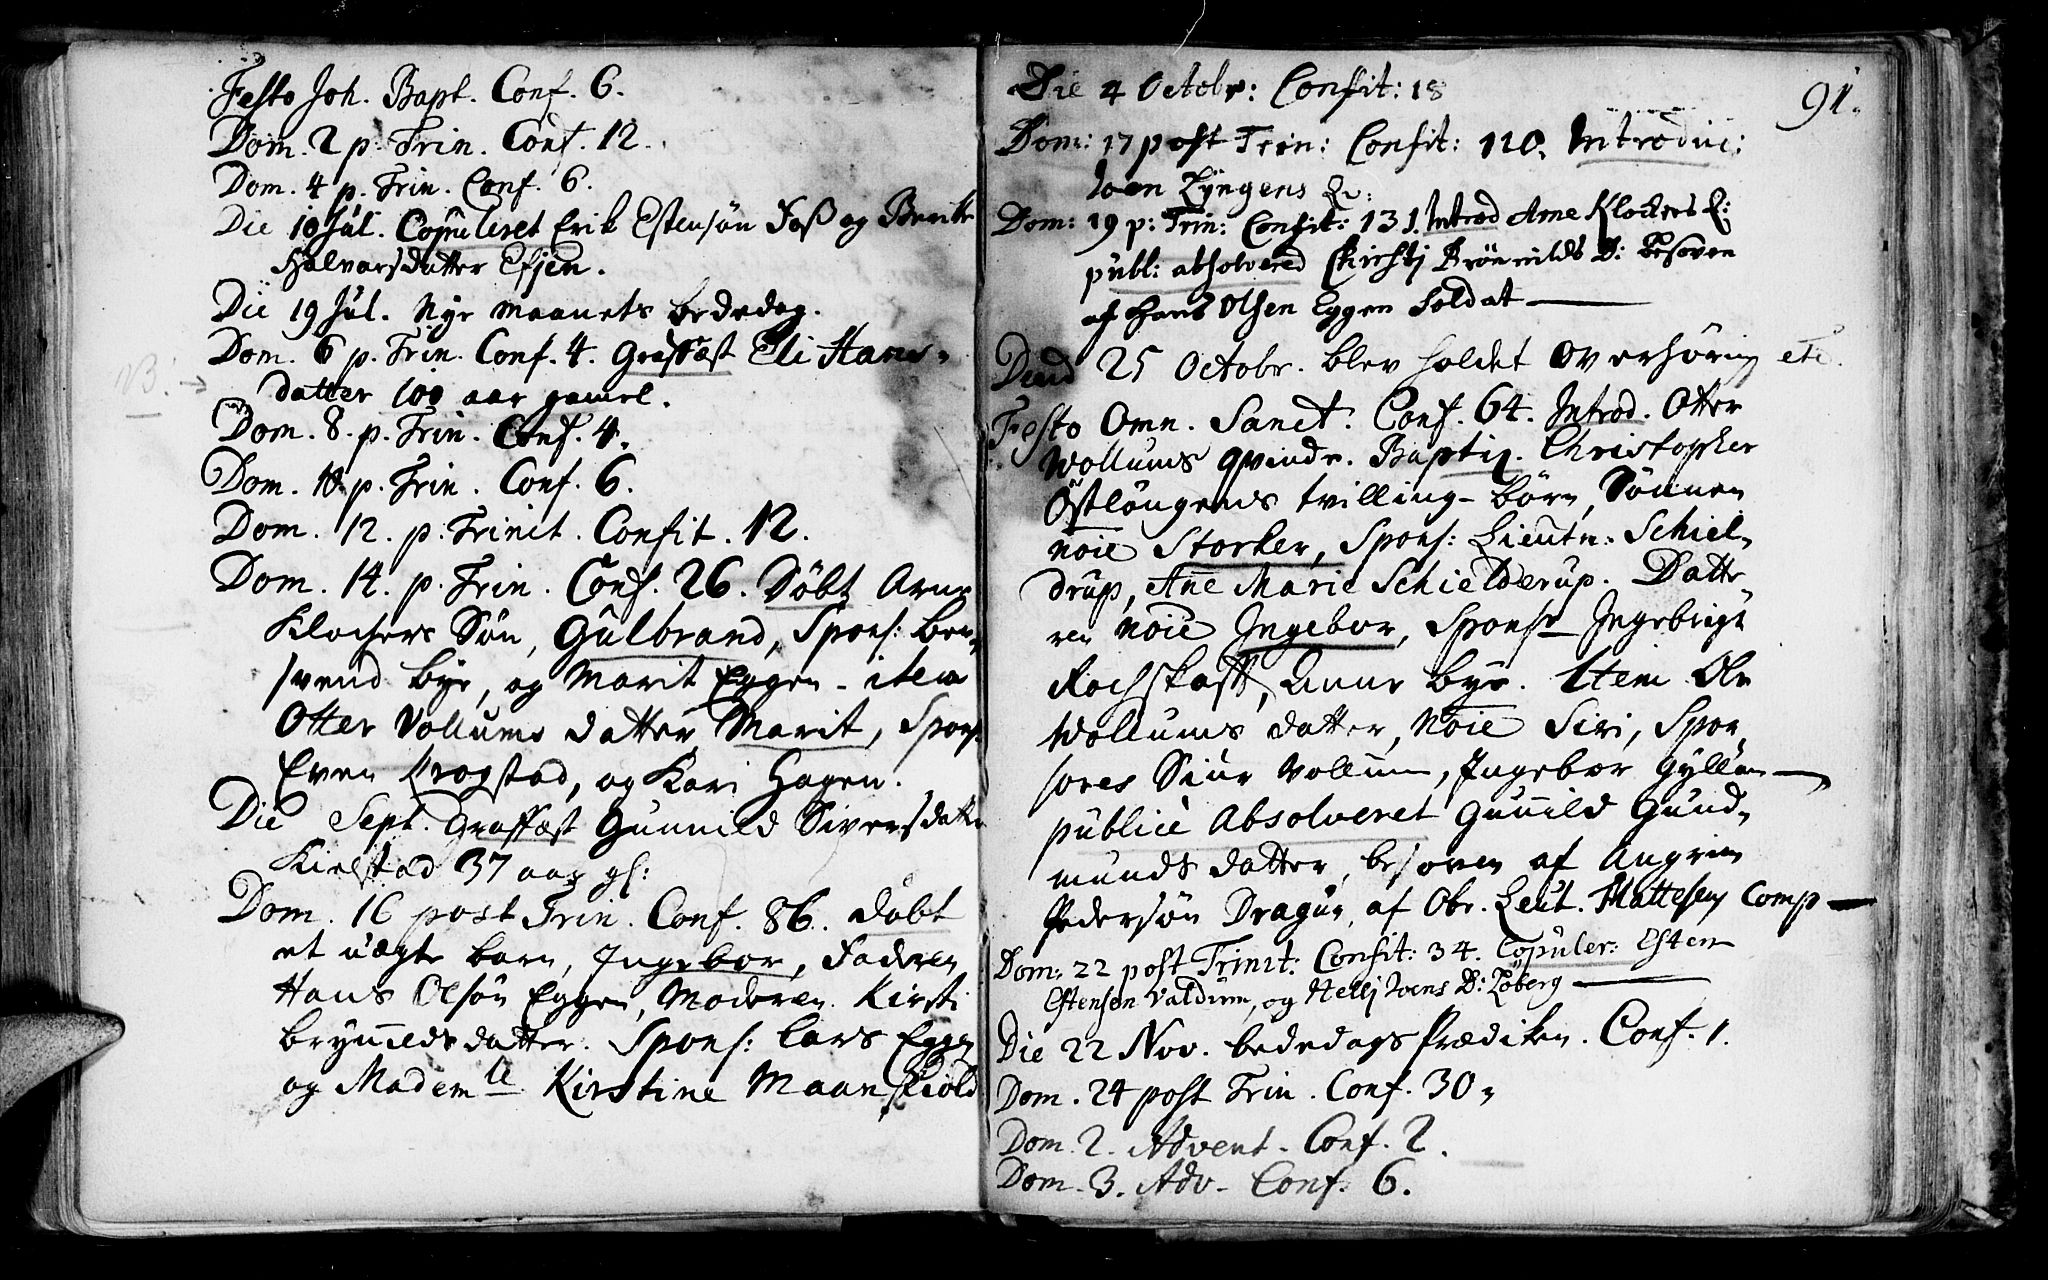 Festo Joh. Bapt. Conf. 6.
Dom. 2 p. Trin. Conf. 12.
Dom. 4 p. Trin. Conf. 6.
Die 10 Jul. Copuleret Erik Estensøn Foss og Beritte
Halvorsdatter Efjen.
Die 19 Jul. Nye Maanets bededag.
Dom. 6 p. Trin. Conf. 4. Graffæst Eli Hans-
NB. datter 100 aar gamel.
Dom. 8. p. Trin. Conf. 4.
Dom. 10. p. Trin. Conf. 6.
Dom. 12. p. Trinit. Confit. 12.
Dom. 14. p. Trin. Conf. 26. Døbt Arne
Klochers Søn, Gulbrand, Spons: Ber-
svend Bye, og Marit Eggen - item
Otter Vollums datter Marit, Spons:
Even Krogstad, og Kari Hagen.
Die Sept. Graffæst Gunnild Siversdatter
Kielstad 37 aar gl:
Dom. 16 post Trin. Conf. 86. døbt
et uægte barn, Ingebor, Faderen
Hans Olsøn Eggen, Moderen Kirsti
Brynnildsdatter. Spons: Lars Eggen
og Madem<sup>lle</sup> Kirstine Maanskiold
91.
Die 4 Octobr: Confit: 18
Dom: 17 post Trin: Confit: 110. Introduc:
Joen Lyngens Qv:
Dom: 19 p: Trin: Confit: 131. Introd Arne Klockers Q:
publ: absolvered Chirstj Brönnilds D: besoven
af Hans Olsen Eggen Soldat
Dend 25 Octobr. blev holdet Overhøring etc.
Festo Omn. Sanct. Conf. 64. Introd. Otter
Wollums qvinde. Baptiz. Christopher
Østløngens tvilling-børn, Sønnen
noie Storker, Spons: Lieutn: Schiel-
drup, Ane Marie Schielderup. Datte
ren noie Ingebor, Spons- Ingebrigt
Rochskaft, Anne Bye. Item Ole
Wollums datter, noie Siri, Spon
sores Siur Vollum, Ingebor Gyllan
publice Absolveret Gunild Gund-
munds datter, besoven af Angrim
Pedersøn Dragun, af Obr. Leut. Mattesens Comp
Dom: 22 post Trinit: Confit: 34. Copuler: Esten
Estensen Valdum, og Nellj Joens D: Løberg
Die 22 Nov. bededags Prædiken. Conf. 1.
Dom. 24 post Trin. Conf. 30.
Dom. 2. Advent. Conf. 2.
Dom. 3. Adv. Conf. 6.